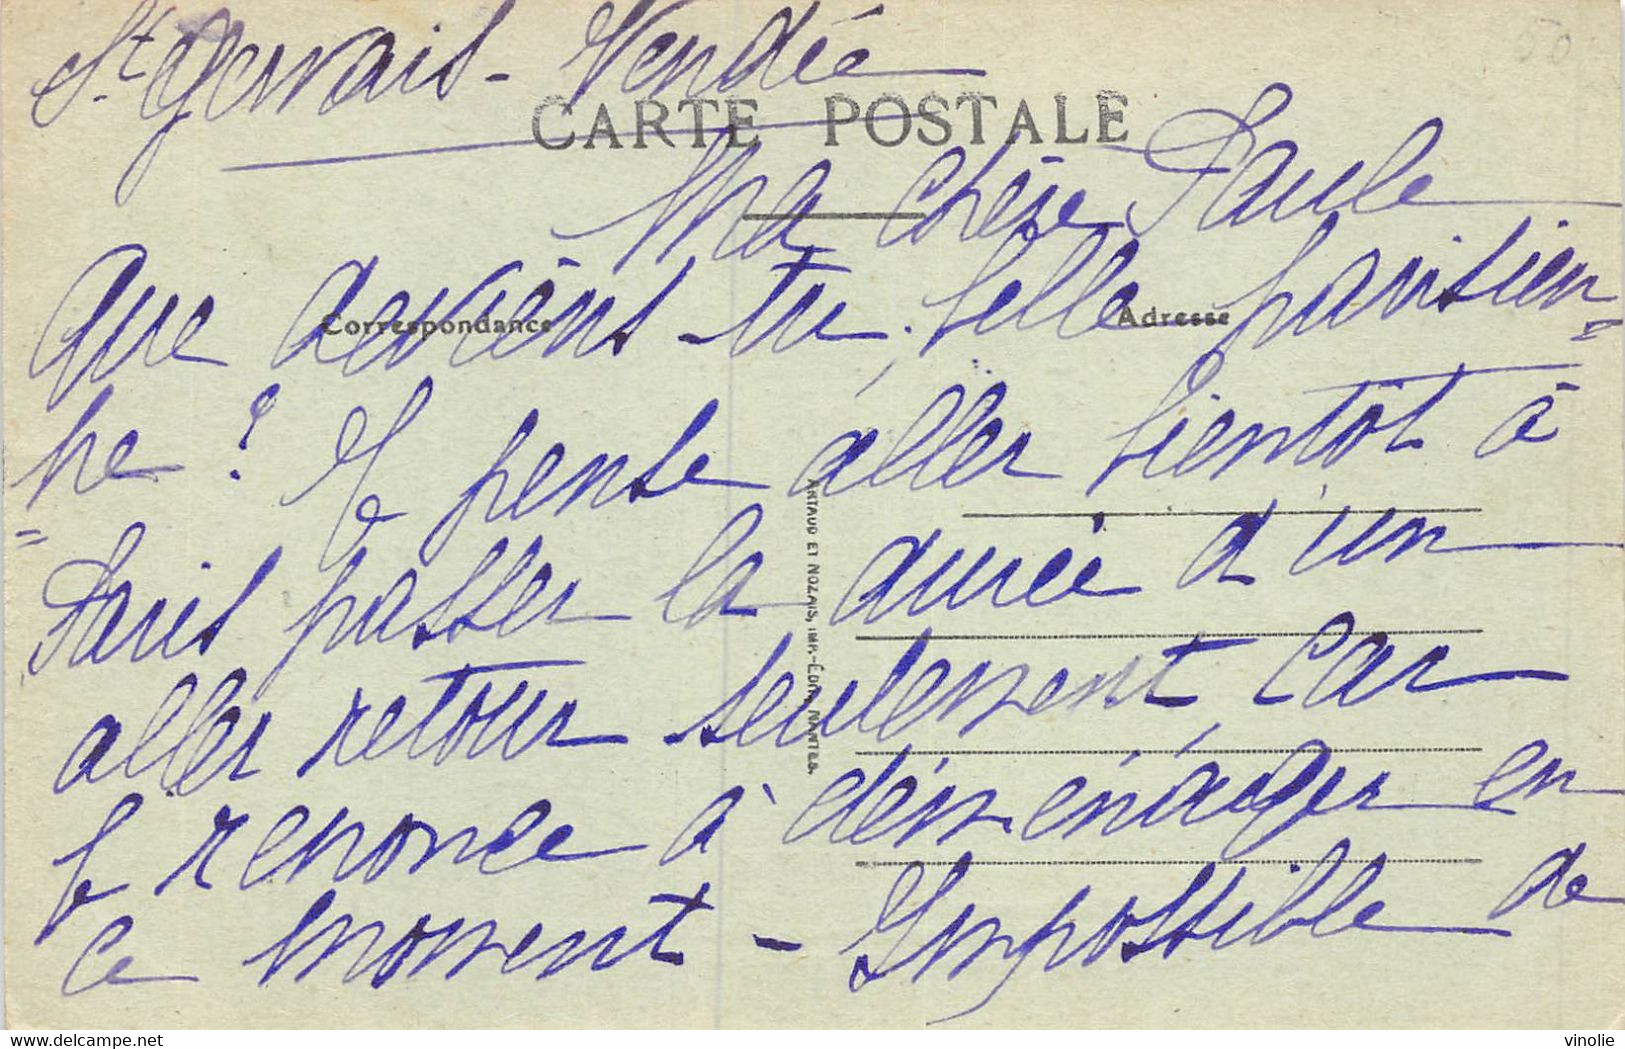 St Gervais - Vendée
50
CARTE POSTALE
Ma chère Paule
Que deviens-tu, belle parisien=
Correspondance
Adresse
=ne ? Je pense aller bientôt à
Paris passer la durée d'un
aller retour seulement, car
je renonce à déménager en
ce moment - Impossible de
ARTAUD ET NOZAIS, IMP.-ÉDIT. NANTES.
delcampe.net
vinolie